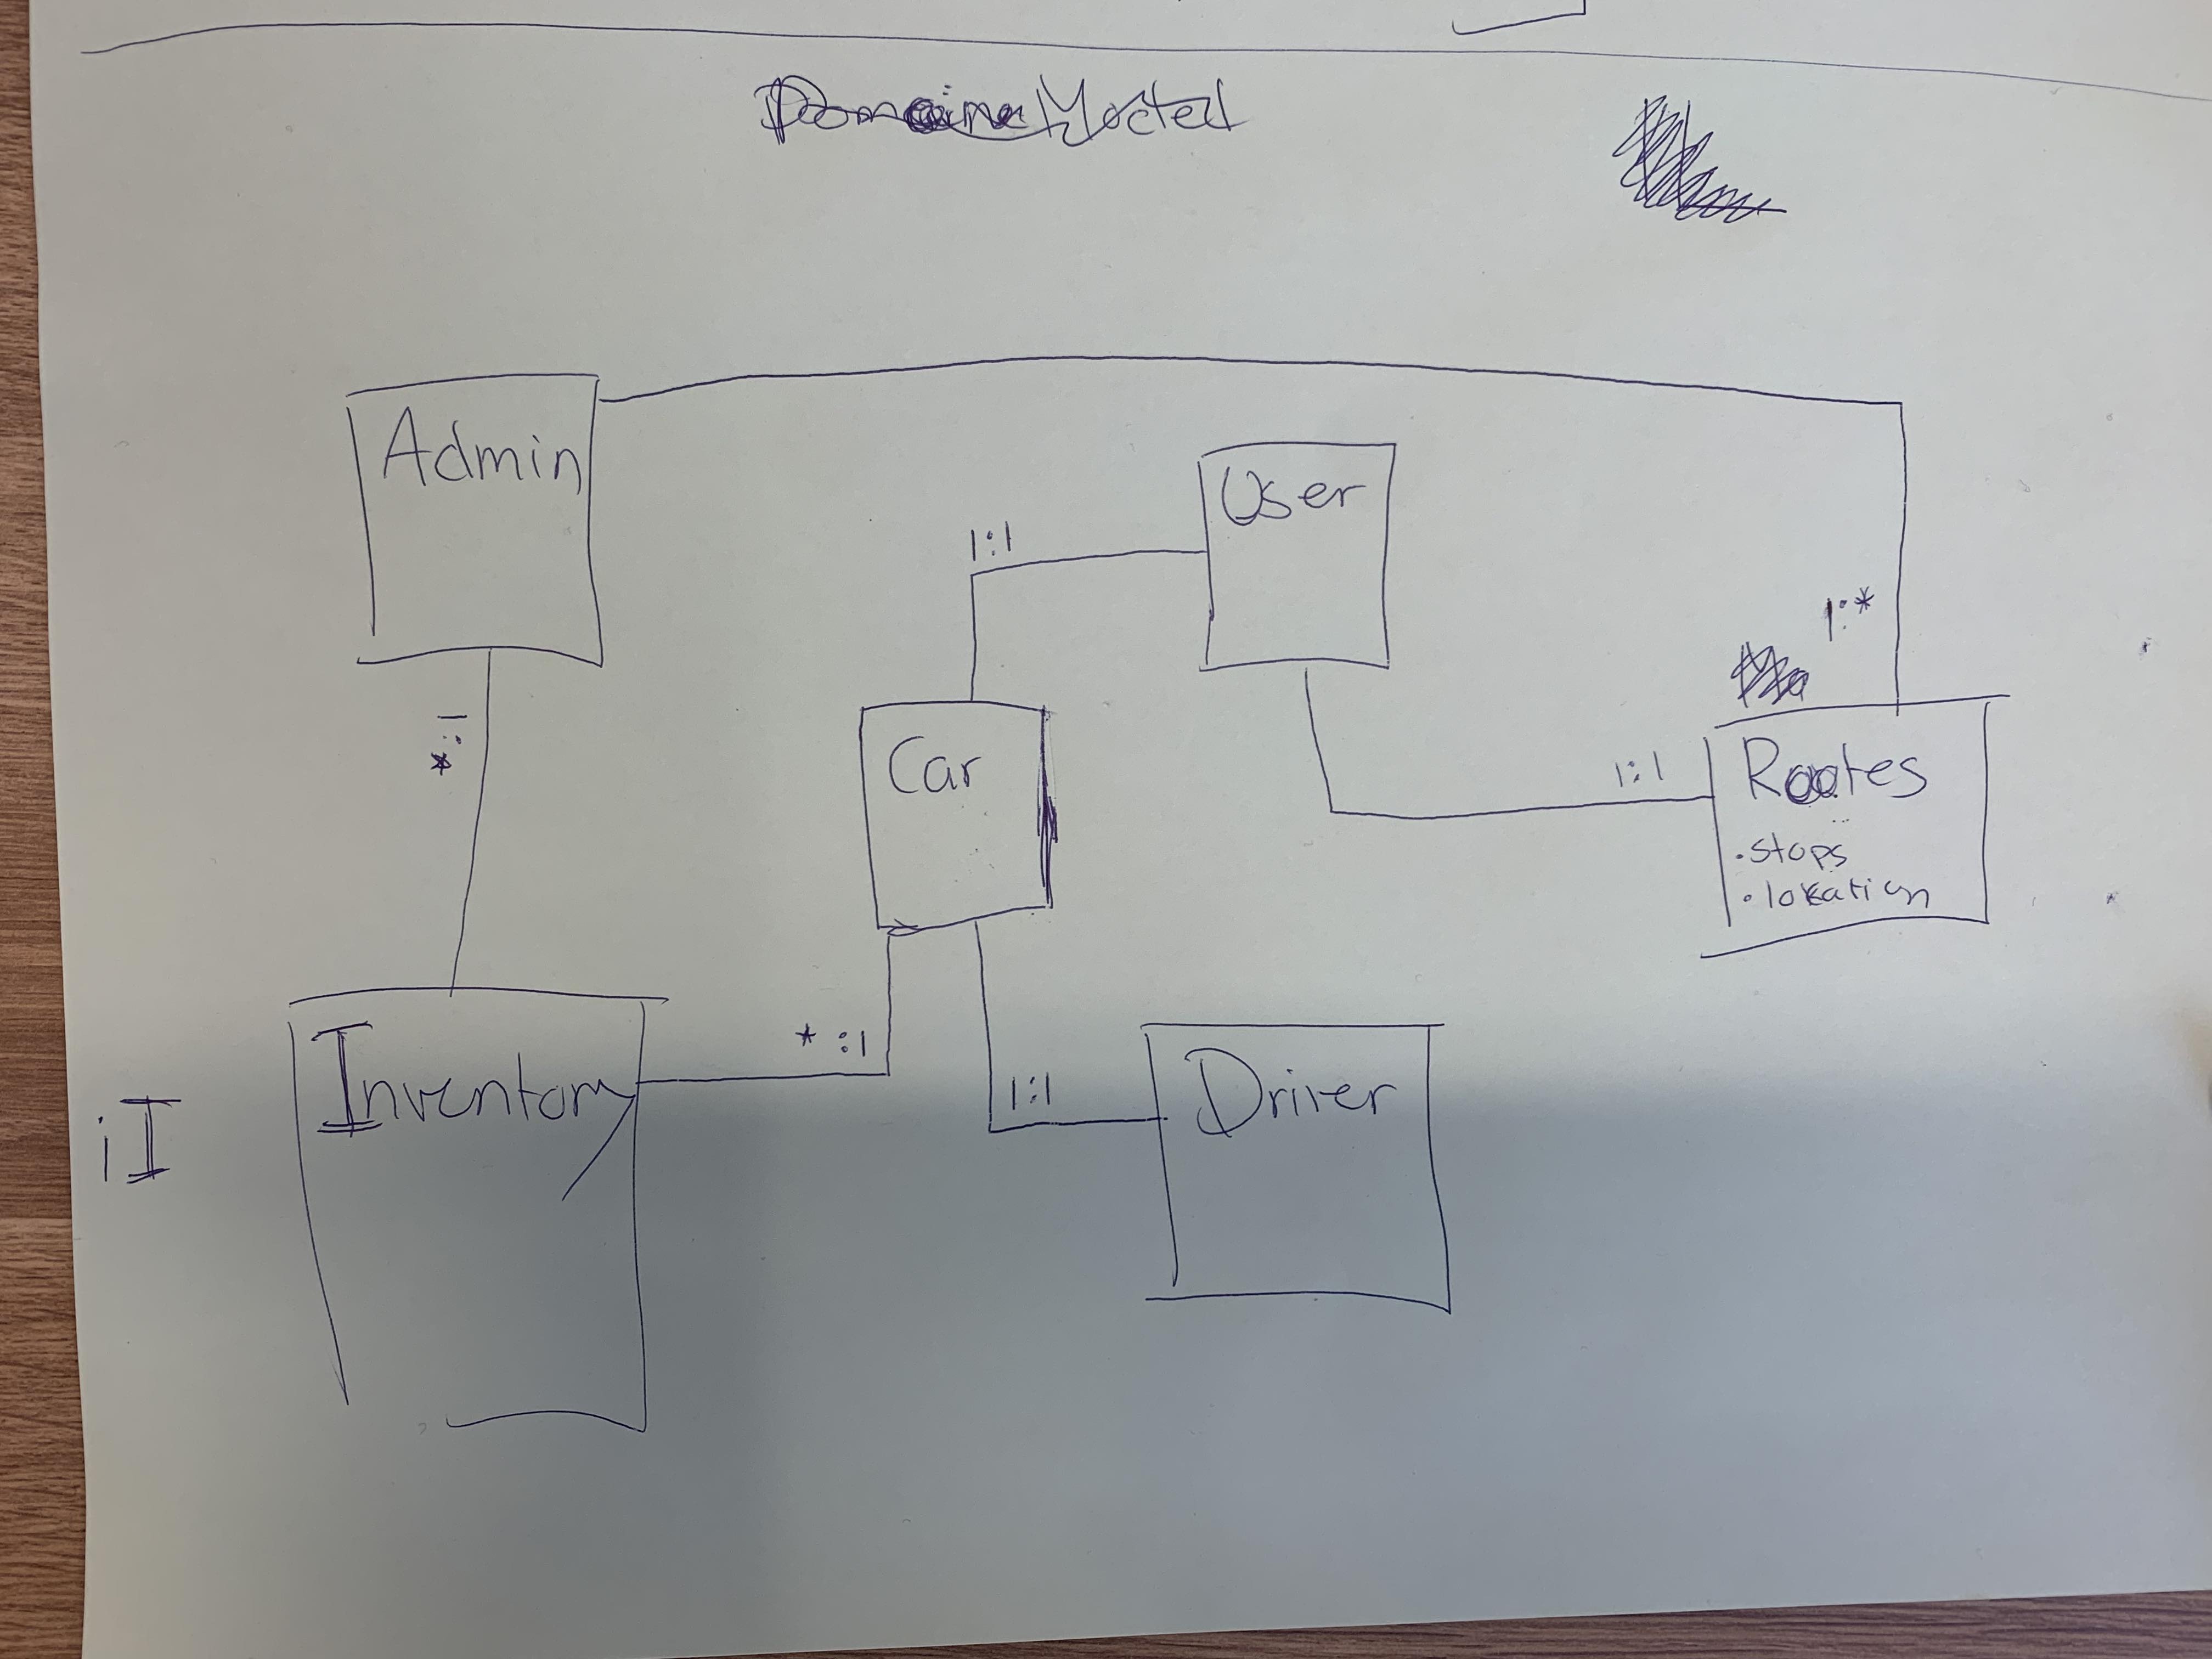 Domain Model
Admin
User
1:1
1:*
1:*
Car
1:1
Routes
.stops
.lokation
*:1
Inventory
1:1
Driver
iI